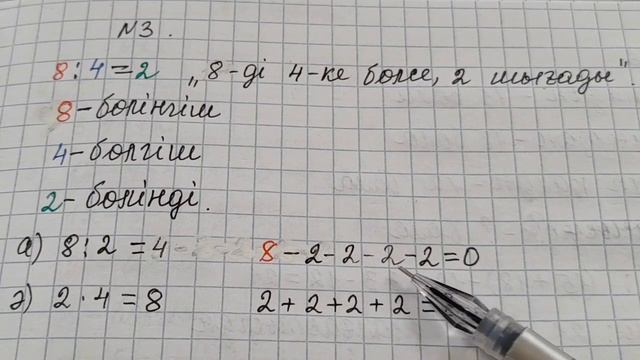 №3.
8:4=2 „8-ді 4-ке бөлсе, 2 шығады".
8-бөлінгіш
4-бөлгіш
2-бөлінді.
а) 8:2=4 8-2-2-2-2=0
ә) 2·4=8 2+2+2+2=